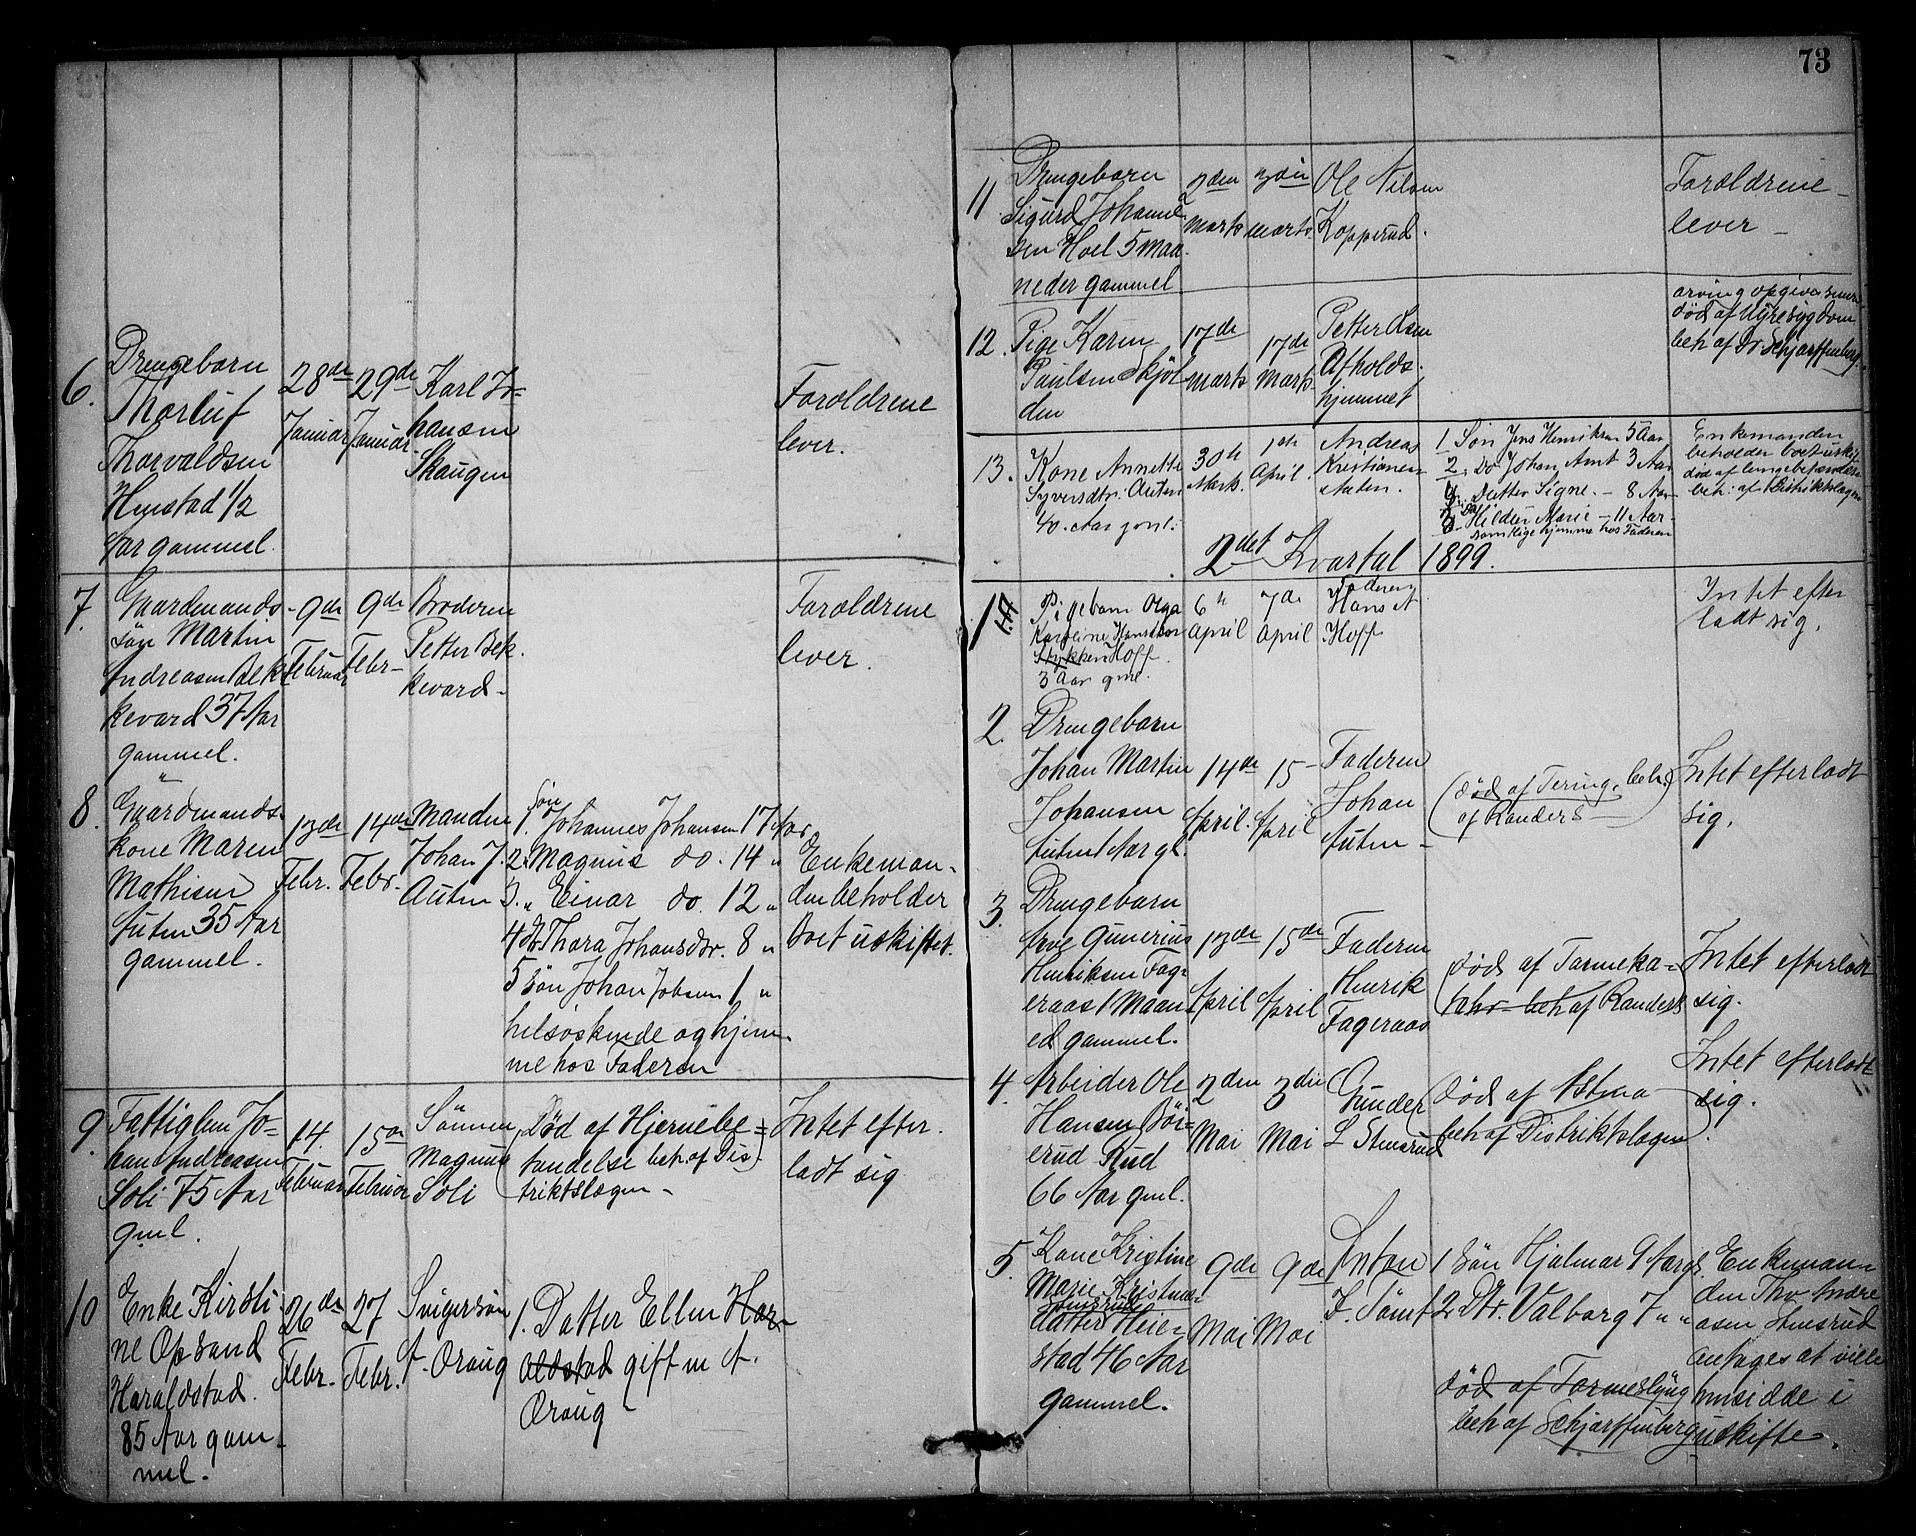 73
6.
Drengebarn
Thorluf
Thorvaldsen
Henstad 1/2
Aar gammel.
28de
Januar
29de
Januar.
Karl Jo-
hansen
Skaugen
Forældrene
lever.
7.
Gaardmands-
søn Martin
Andreasen Bek
kevard 37 Aar
gammel.
9de
Februar
9de
Febr-
Broderen
Petter Bek
kevard-
Forældrene
lever.
8.
Gaardmands-
kone Maren
Mathisen
Auten 35 Aar
gammel.
13de
Febr.
14de
Febr.
Manden
Johan J.
Auten
1. Søn Johannes Johansen 17 Aar
2. " Magnus do. 14 "
3. " Einar do. 12 "
4 Dtr. Thora Johansdtr. 8 "
5 Søn Johan Johsen 1 "
helsøskende og hjem-
me hos Faderen
Enkeman-
den beholder
Boet uskiftet.
9.
Fattiglem Jo-
han Andreasen
Soli 75 Aar
gml.
14.
Februar
15de
Februar
Sønnen
Magnus
Soli
(Død af Hjernebe=
tændelse beh. af Dis)
triktslægen-
Intet efter-
ladt sig
10
Enke Kirsti-
ne Opsand
Haraldstad.
85 Aar gam-
mel.
26de
Febr.
27
Febr.
Svigersøn
A. Øraug
1. Datter Ellen Har-
aldstad gift m A.
Øraug-
11
Drengebarn
Sigurd Johannes-
sen Hoel 5 Maa-
neder gammel
2den
Marts
3die
Marts
Ole Nilsen
Kopperud.
Forældrene-
lever-
12.
Pige Karen
Paulsen Skjol
den
17de
Marts
17de
Marts
Petter Olsen
Afholds-
hjemmet
arving opgives senere
død af Nyresygdom
beh af Dr Schjarffenberg.
13.
Kone Annette
Syversdtr. Auten
40. Aar gml.
30te
Marts.
1ste
April.
Andreas
Kristiansen
Auten.
1 Søn Jens Henriksen 5 Aar
2. Do Johan Arnt 3 Aar
Datter Signe. - 8 Aar
Do Hilder Marie - 11 Aar-
samtlige hjemme hos Faderen
Enkemanden
beholder boet uskif
død af lungebetændelse
beh: af Distriktslægen
2det Kvartal 1899.
1
Pigebarn Olga
Karoline Hansen
Stykket Hoff.
3 Aar gml.
6te
April
7de
April
Faderen
Hans A
Hoff
Intet efter
ladt sig.
2.
Drengebarn
Johan Martin
Johansen
Auten 1 Aar gl.
14de
April.
15-
April
Faderen
Johan
Auten-
(død af Tæring, beh.)
af Randers-
Intet efterladt
sig.
3.
Drengebarn
Arve Gunerius
Henriksen Fag-
eraas 1 Maan-
ed gammel.
13de
April
15de
April
Faderen
Henrik
Fageraas
(død af Tarmeka-
tahr beh af Randers
Intet efterladt
sig.
4.
Arbeider Ole
Hansen Bøi-
erud Rud
66 Aar gml.
2den
Mai
3die
Mai
Gunder
L Stensrud
(død af Astma
beh af Distriktslægen).
Intet efterladt
sig.
5.
Kone Kristine
Marie Kristians-
Stensrud
datter Heie-
stad 46 Aar
gammel.
9de
Mai
9de
Mai
Anton
1 Søn Hjalmar 9 Aar gl.
2 Dtr. Valborg 7 " "
død af Tarmeslyng
beh af Schjarffenberg
Enkeman-
den Thv Andre
asen Stensrud
antages at ville
hensidde i
uskifte.